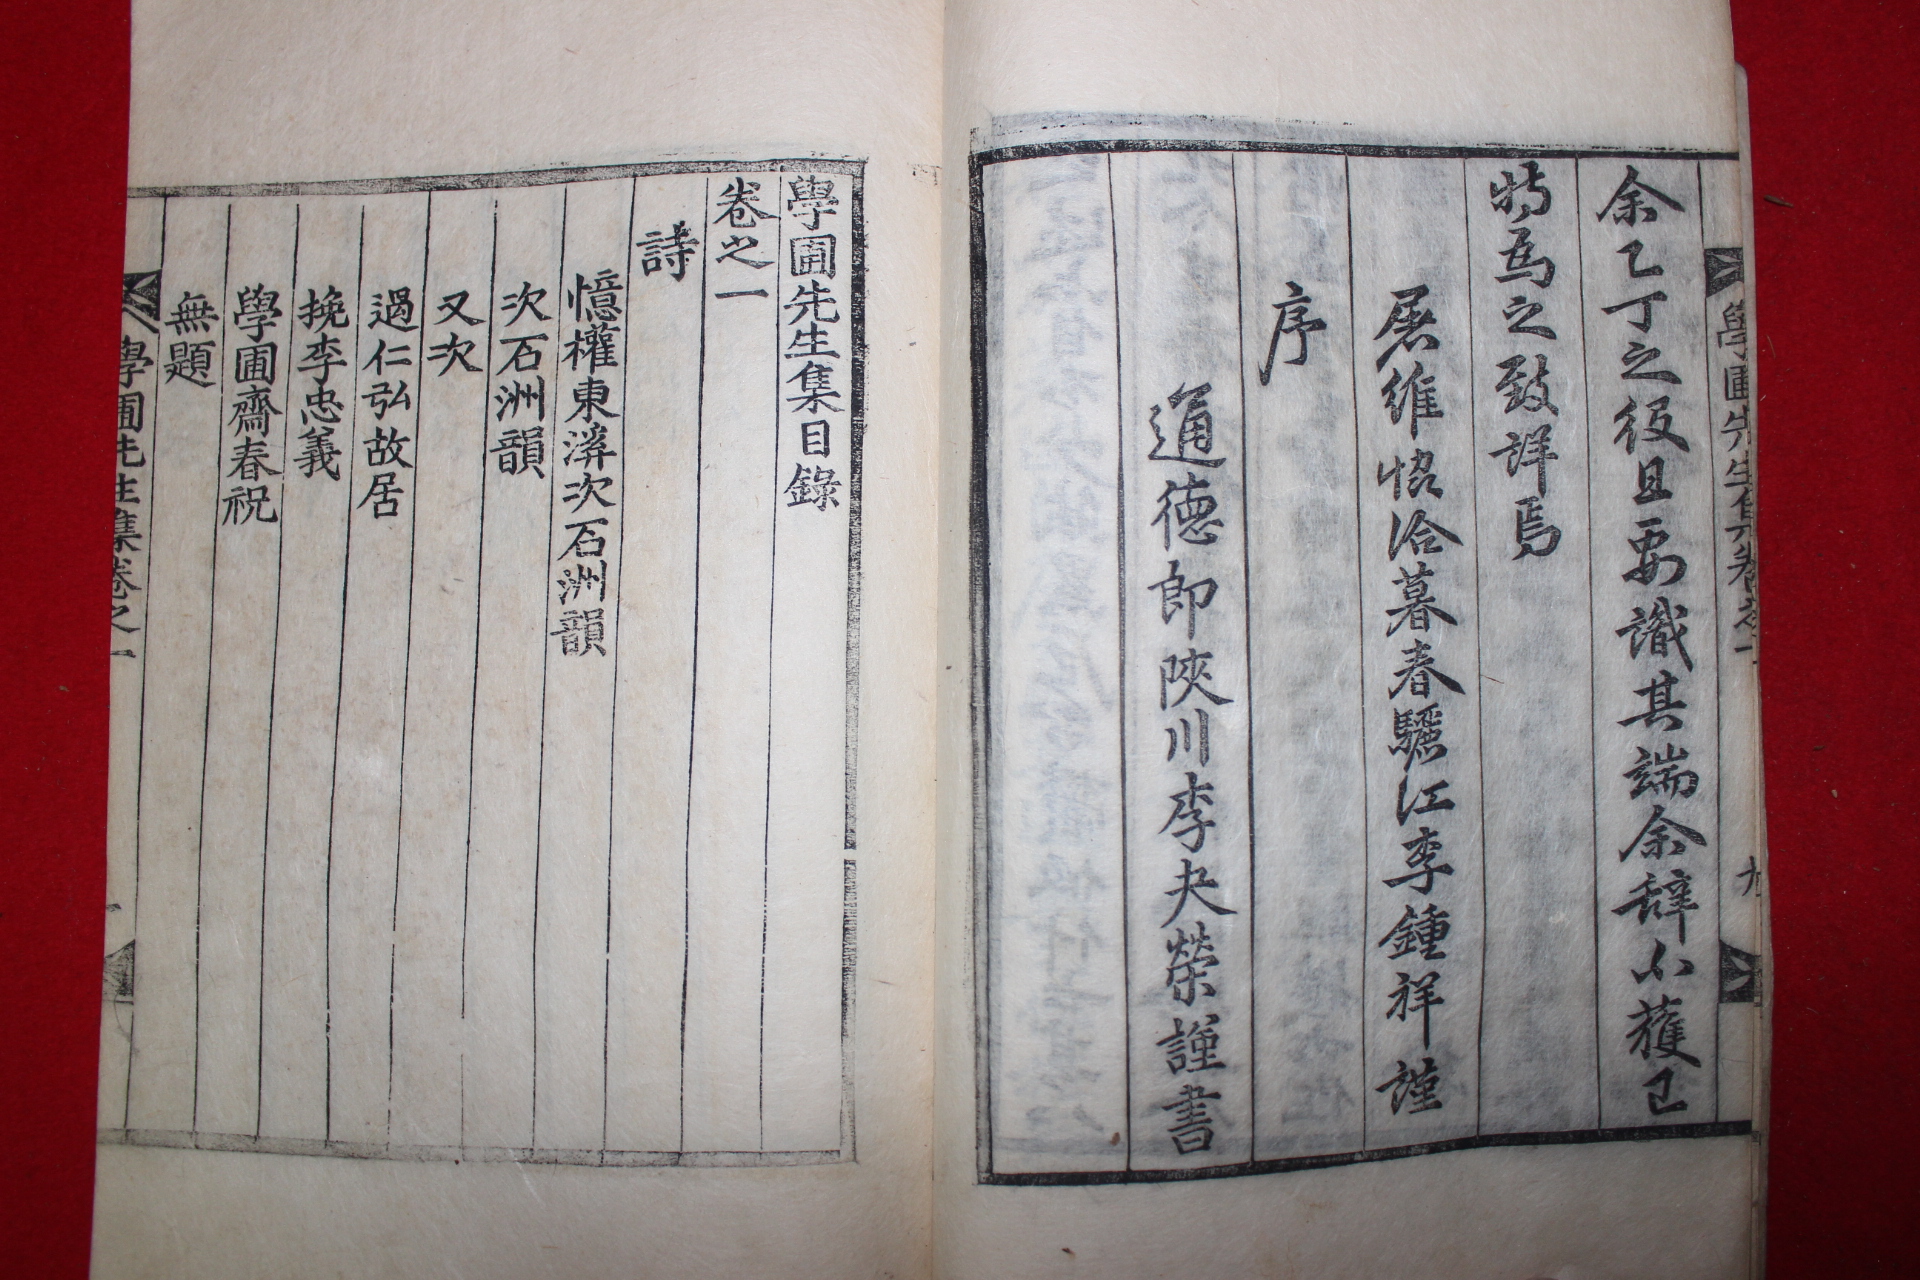 學圃先生集卷之一 九
余乙丁之役且要識其端余辭不獲已
特為之致詳焉
屠維恊洽暮春驪江李鍾祥謹
序
通德郎陜川李夬榮謹書
學圃先生集目錄
卷之一
詩
憶權東溪次石洲韻
次石洲韻
又次
過仁弘故居
挽李忠義
學圃齋春祝
無題
學圃先生集卷之一